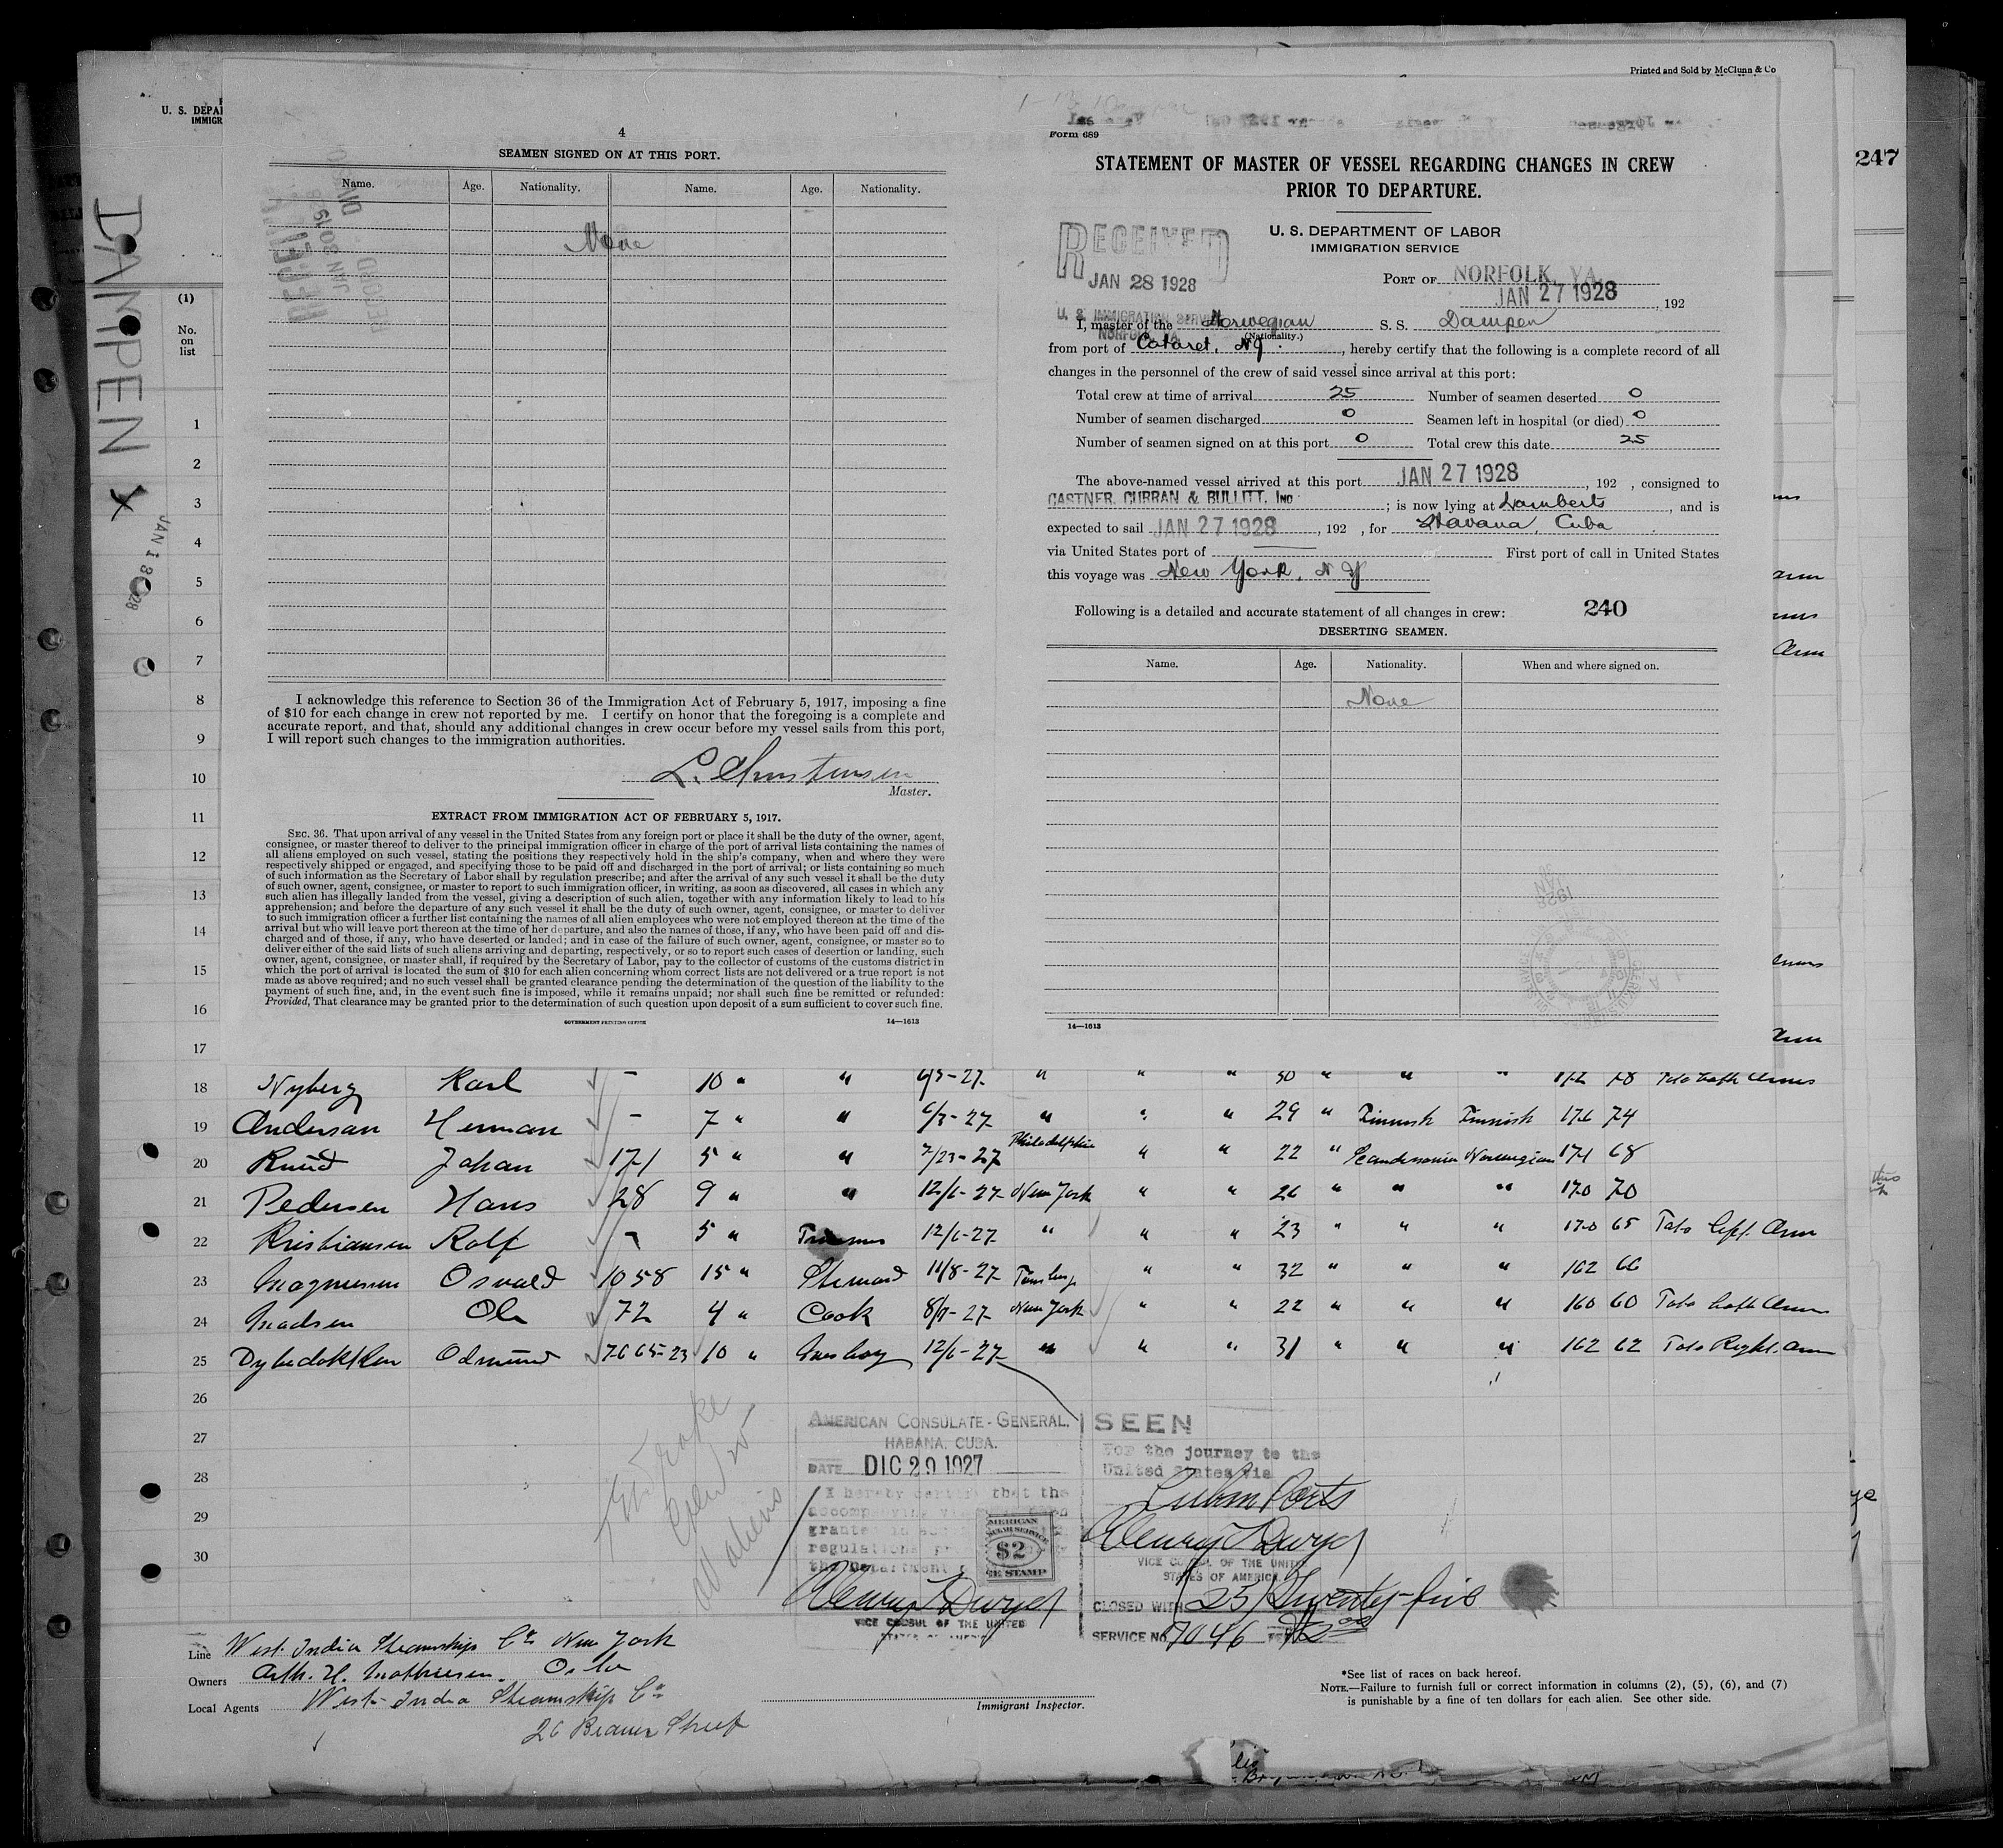 Printed and Sold by McClunn & Co
U. S. DEPA
IMMIGR
247
4
SEAMEN SIGNED ON AT THIS PORT.
Name. Age. Nationality. Name. Age. Nationality.
None
I acknowledge this reference to Section 36 of the Immigration Act of February 5, 1917, imposing a fine
of $10 for each change in crew not reported by me. I certify on honor that the foregoing is a complete and
accurate report, and that, should any additional changes in crew occur before my vessel sails from this port,
I will report such changes to the immigration authorities.
L. Christensen
Master.
EXTRACT FROM IMMIGRATION ACT OF FEBRUARY 5, 1917.
SEC. 36. That upon arrival of any vessel in the United States from any foreign port or place it shall be the duty of the owner, agent,
consignee, or master thereof to deliver to the principal immigration officer in charge of the port of arrival lists containing the names of
all aliens employed on such vessel, stating the positions they respectively hold in the ship's company, when and where they were
respectively shipped or engaged, and specifying those to be paid off and discharged in the port of arrival; or lists containing so much
of such information as the Secretary of Labor shall by regulation prescribe; and after the arrival of any such vessel it shall be the duty
of such owner, agent, consignee, or master to report to such immigration officer, in writing, as soon as discovered, all cases in which any
such alien has illegally landed from the vessel, giving a description of such alien, together with any information likely to lead to his
apprehension; and before the departure of any such vessel it shall be the duty of such owner, agent, consignee, or master to deliver
to such immigration officer a further list containing the names of all alien employees who were not employed thereon at the time of the
arrival but who will leave port thereon at the time of her departure, and also the names of those, if any, who have been paid off and dis-
charged and of those, if any, who have deserted or landed; and in case of the failure of such owner, agent, consignee, or master so to
deliver either of the said lists of such aliens arriving and departing, respectively, or so to report such cases of desertion or landing, such
owner, agent, consignee, or master shall, if required by the Secretary of Labor, pay to the collector of customs of the customs district in
which the port of arrival is located the sum of $10 for each alien concerning whom correct lists are not delivered or a true report is not
made as above required; and no such vessel shall be granted clearance pending the determination of the question of the liability to the
payment of such fine, and, in the event such fine is imposed, while it remains unpaid; nor shall such fine be remitted or refunded:
Provided, That clearance may be granted prior to the determination of such question upon deposit of a sum sufficient to cover such fine.
GOVERNMENT PRINTING OFFICE 14—1613
Form 689
STATEMENT OF MASTER OF VESSEL REGARDING CHANGES IN CREW
PRIOR TO DEPARTURE.
U. S. DEPARTMENT OF LABOR
IMMIGRATION SERVICE
RECEIVED
JAN 28 1928
U. S. IMMIGRATION SERVICE
NORFOLK, VA.
PORT OF NORFOLK, VA.
JAN 27 1928, 192
I, master of the Norwegian S. S. Dampen
(Nationality.)
from port of Cataret, NJ., hereby certify that the following is a complete record of all
changes in the personnel of the crew of said vessel since arrival at this port:
Total crew at time of arrival 25 Number of seamen deserted 0
Number of seamen discharged 0 Seamen left in hospital (or died) 0
Number of seamen signed on at this port 0 Total crew this date 25
The above-named vessel arrived at this port JAN 27 1928, 192 , consigned to
CASTNER, CURRAN & BULLITT, INC ; is now lying at Lamberts, and is
expected to sail JAN 27 1928, 192 , for Havana, Cuba
via United States port of First port of call in United States
this voyage was New York, N Y
Following is a detailed and accurate statement of all changes in crew: 240
DESERTING SEAMEN.
Name. Age. Nationality. When and where signed on.
None
14—1613
DAMPEN X
JAN 13 1928
(1)
No.
on
list
1
2
3
4
5
6
7
8
9
10
11
12
13
14
15
16
17
18 Nyberg Karl - 10 " " 6/3-27 " " " 30 " " " 172 78 Tato both arms
19 Anderson Herman - 7 " " 6/3-27 " " " 29 " Finnish Finnish 176 74
20 Ruud Johan 171 5 " " 7/23-27 Philadelphia " " 22 " Scandinavian Norwegian 171 68
21 Pedersen Hans 28 9 " " 12/6-27 New York " " 26 " " " 170 70
22 Kristiansen Rolf - 5 " 12/6-27 " " " 23 " " " 170 65 Tato left arm
23 Magnussen Osvald 1058 15 " Steward 11/8-27 Tønsberg " " 32 " " " 162 66
24 Madsen Ole 72 4 " Cook New York " " 22 " " " 160 60 Tato both arms
25 Dybedokken Odmund 7665-23 10 " Mesboy 12/6-27 " " " 31 " " " 162 62 Tato Right arm
26
27
28
29
30
AMERICAN CONSULATE-GENERAL,
HABANA, CUBA.
DATE DIC 29 1927
I hereby certify that the
AMERICAN
$2
FEE STAMP
Henry T Dwyer
VICE CONSUL OF THE UNITED
STATES OF AMERICA
SEEN
For the journey to the
United States via
Cuban Ports
Henry T Dwyer
VICE CONSUL OF THE UNITED
STATES OF AMERICA
CLOSED WITH 25/Twenty-five
SERVICE No. 7046 FEE $2.00
Line West India Steamship Co New York
Owners Arth. H. Mathiesen. Oslo
Local Agents West India Steamship Co
26 Beaver Street
Immigrant Inspector.
*See list of races on back hereof.
NOTE.—Failure to furnish full or correct information in columns (2), (5), (6), and (7)
is punishable by a fine of ten dollars for each alien. See other side.